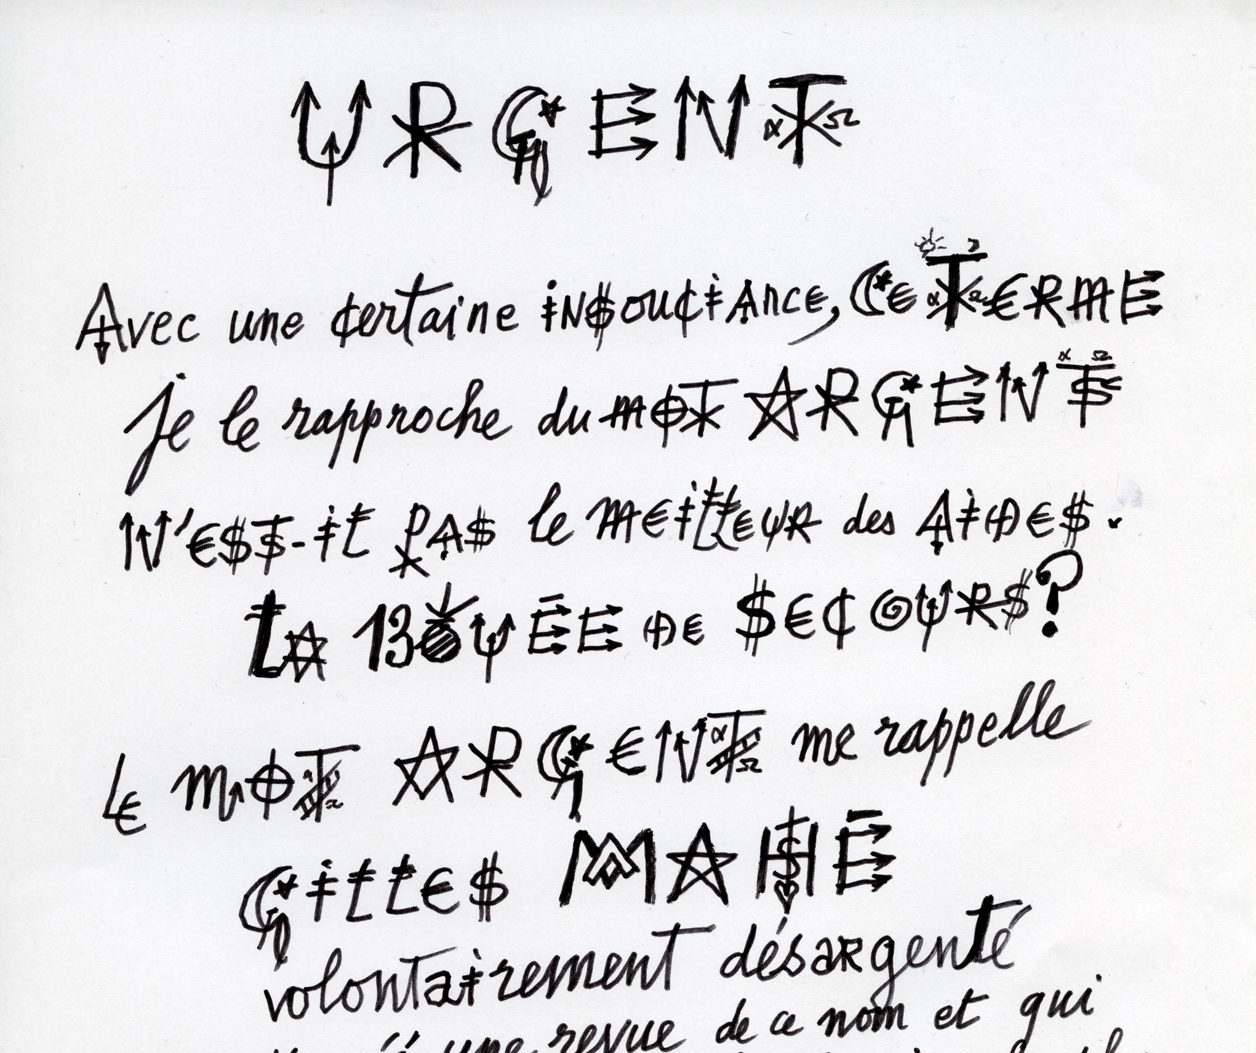 URGENT
Avec une certaine INSOUCIANCE, CE TERME
je le rapproche du MOT ARGENT
N'EST-IL PAS le MEILLEUR des AIDES.
LA BOUÉE DE SECOURS?
LE MOT ARGENT me rappelle
GILLES MAHÉ
volontairement désargenté
une revue de ce nom et qui